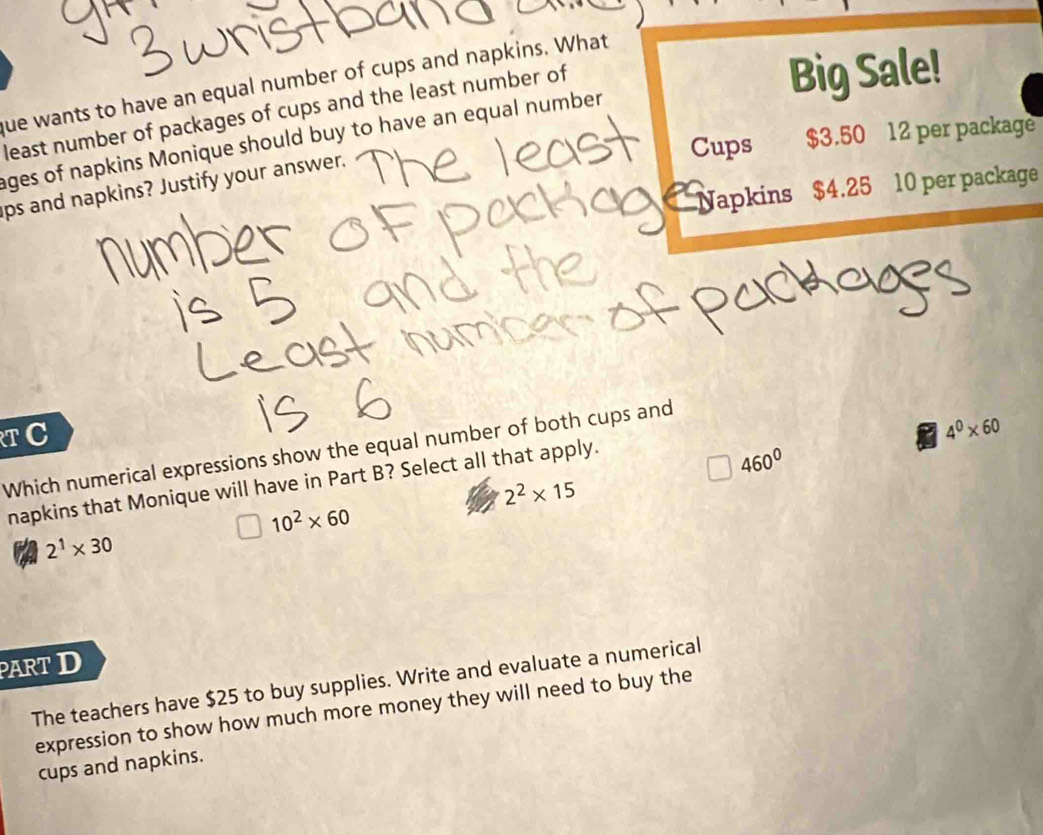 3 wristband
que wants to have an equal number of cups and napkins. What
least number of packages of cups and the least number of
ages of napkins Monique should buy to have an equal number
ups and napkins? Justify your answer.
The least
number of packages
is 5 and the
Least number of packages
is 6
Big Sale!
Cups $3.50 12 per package
Napkins $4.25 10 per package
RT C
Which numerical expressions show the equal number of both cups and
napkins that Monique will have in Part B? Select all that apply.
2¹ × 30
10² × 60
2² × 15
460⁰
4⁰ × 60
PART D
The teachers have $25 to buy supplies. Write and evaluate a numerical
expression to show how much more money they will need to buy the
cups and napkins.